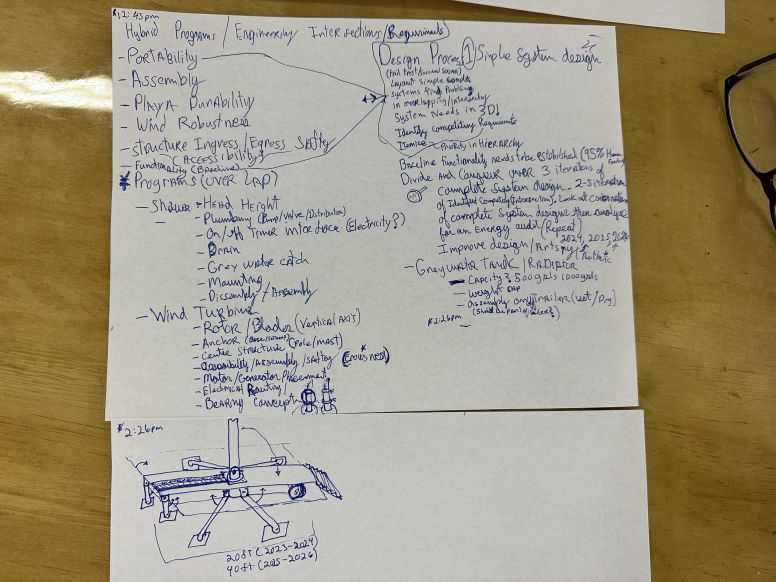 12:45pm
Hybrid Programs / Engineering Intersections (Requirements)
- Portability
- Assembly
- Playa Durability
- Wind Robustness
- Structure Ingress/Egress Safety
(Accessibility)
- Functionality (Baseline)
* Programs (Over Lap)
- Shower - Head Height
- Plumbing (Pump/Valve/Distribution)
- On/off Timer Interface (Electricity?)
- Drain
- Grey water catch
- Mounting
- Disassembly/Assembly
- Wind Turbine
- Rotor/Blades (Vertical Axis)
- Anchor
- Center Structure (Pole/mast)
- Accessibility/Assembly/Safety
- Motor/Generator Placement
- Electrical Routing/
- Bearing Concept
Design Process 1 Simple System design
Layout Simple
Systems Problems
in overlapping/Intersecting
System Needs in 3D!
Identify Competing Requirements
Itemize Priority in Hierarchy
Baseline Functionality needs to be established (95%
Divide and Conquer over 3 iterations of
complete System design. 2-5 iterations
of Identified Competing (Intersections). Look at combination
of complete System designs then analyze
for an energy audit (Repeat)
2024, 2025, 2026
Improve design/Arts
Aesthetic
- Grey water Tank / Radiator
- Capacity 3,500gals 1000gals
- Weight
- Assembly on trailer (Wet/Dry)
2:26pm
2:26pm
20ft (2023-2024)
40ft (2025-2026)